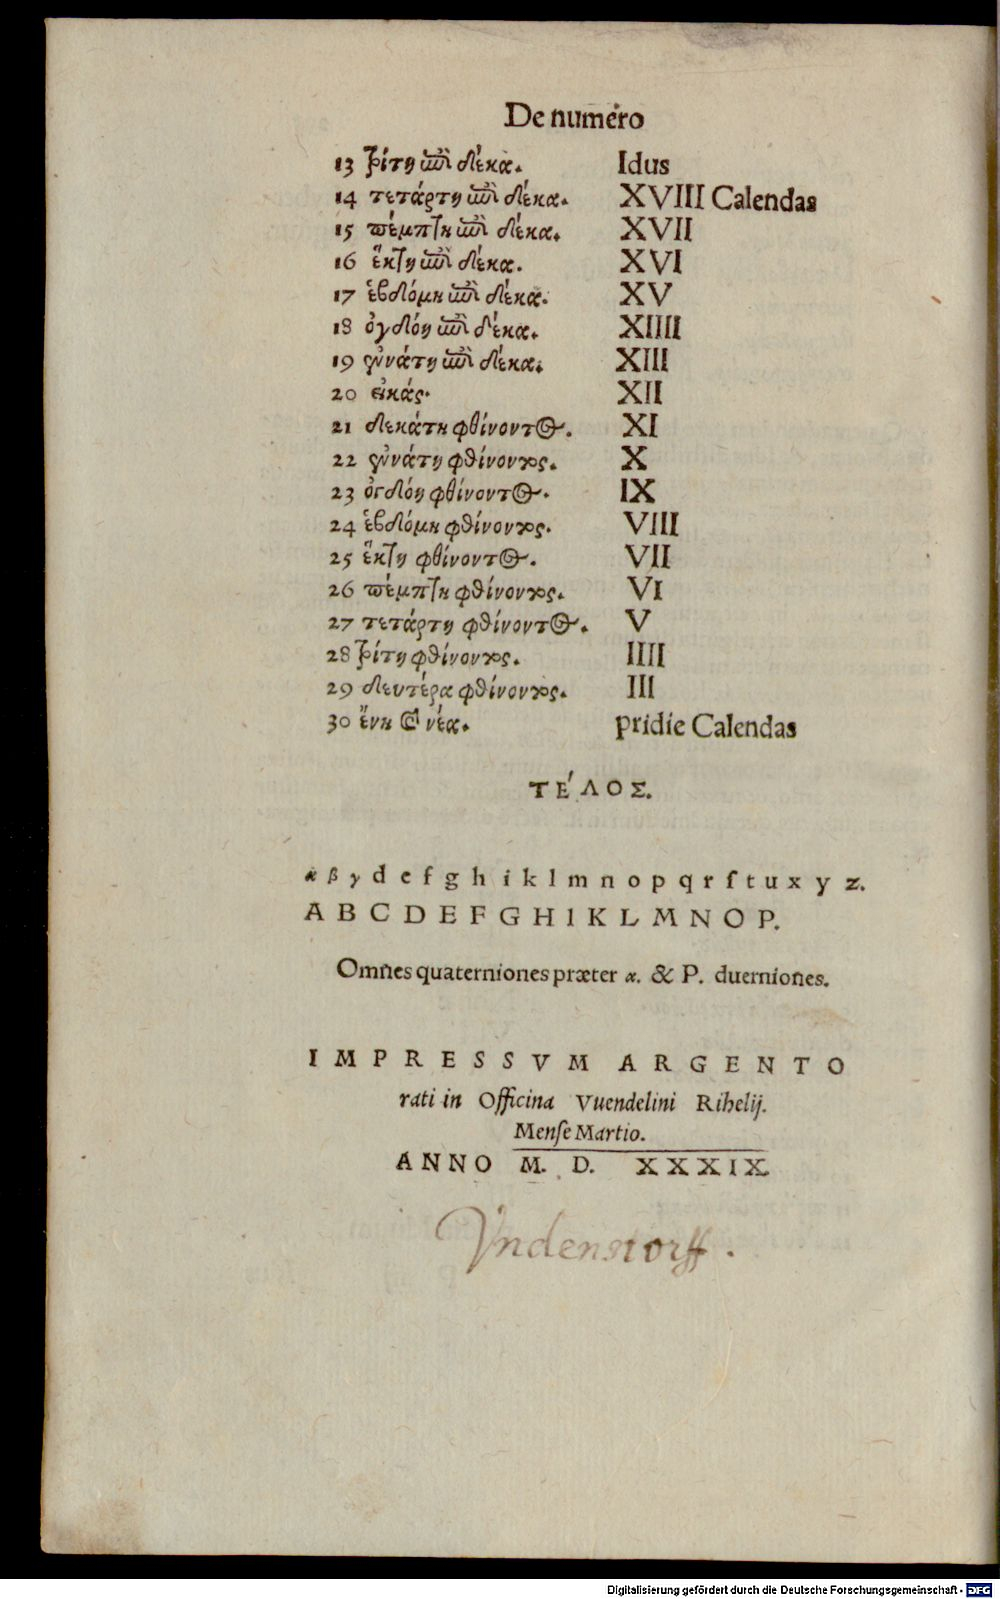 De numero
13 τρίτη ἐπὶ δέκα. Idus
14 τετάρτη ἐπὶ δέκα. XVIII Calendas
15 πέμπτη ἐπὶ δέκα. XVII
16 ἕκτη ἐπὶ δέκα. XVI
17 ἑβδόμη ἐπὶ δέκα. XV
18 ὀγδόη ἐπὶ δέκα. XIIII
19 ἐννάτη ἐπὶ δέκα. XIII
20 εἰκάς. XII
21 δεκάτη φθίνοντος. XI
22 ἐννάτη φθίνοντος. X
23 ὀγδόη φθίνοντος. IX
24 ἑβδόμη φθίνοντος. VIII
25 ἕκτη φθίνοντος. VII
26 πέμπτη φθίνοντος. VI
27 τετάρτη φθίνοντος. V
28 τρίτη φθίνοντος. IIII
29 δευτέρα φθίνοντος. III
30 ἕνη καὶ νέα. pridie Calendas
ΤΕ´ΛΟΣ.
α β γ d e f g h i k l m n o p q r ſ t u x y z.
A B C D E F G H I K L M N O P.
Omnes quaterniones præter α. & P. duerniones.
IMPRESSVM ARGENTO
rati in Officina Vuendelini Rihelij.
Menſe Martio.
ANNO M. D. XXXIX.
Vndenstorff.
Digitalisierung gefördert durch die Deutsche Forschungsgemeinschaft - DFG